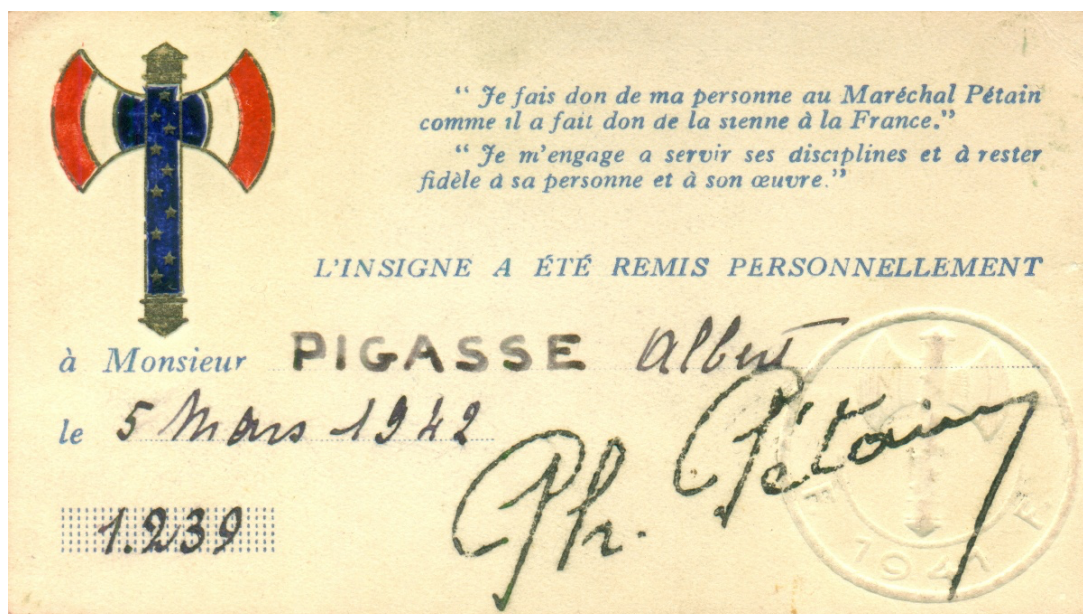 “ Je fais don de ma personne au Maréchal Pétain
comme il a fait don de la sienne à la France.”
“ Je m'engage a servir ses disciplines et à rester
fidèle à sa personne et à son œuvre.”
L'INSIGNE A ÉTÉ REMIS PERSONNELLEMENT
à Monsieur PIGASSE Albert
le 5 Mars 1942
Ph. Pétain
1.239
F
1941